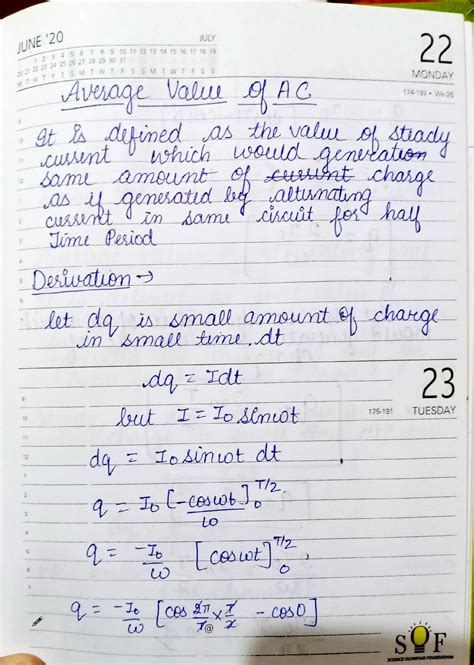 JUNE '20
JULY
22
MONDAY
174-192 • Wk-26
Average Value of AC
It is defined as the value of steady
current which would generation
same amount of current charge
as if generated by alternating
current in same circuit for half
Time Period
Derivation →
let dq is small amount of charge
in small time dt
dq = Idt
but I = I₀ sinωt
23
TUESDAY
175-191
dq = I₀ sinωt dt
q = I₀ [-cosωt/ω]₀^T/2
q = -I₀/ω [cosωt]₀^T/2
q = -I₀/ω [cos 2π/T × T/2 - cos0]
SOF
SCIENCE OLYMPIAD FOUNDATION